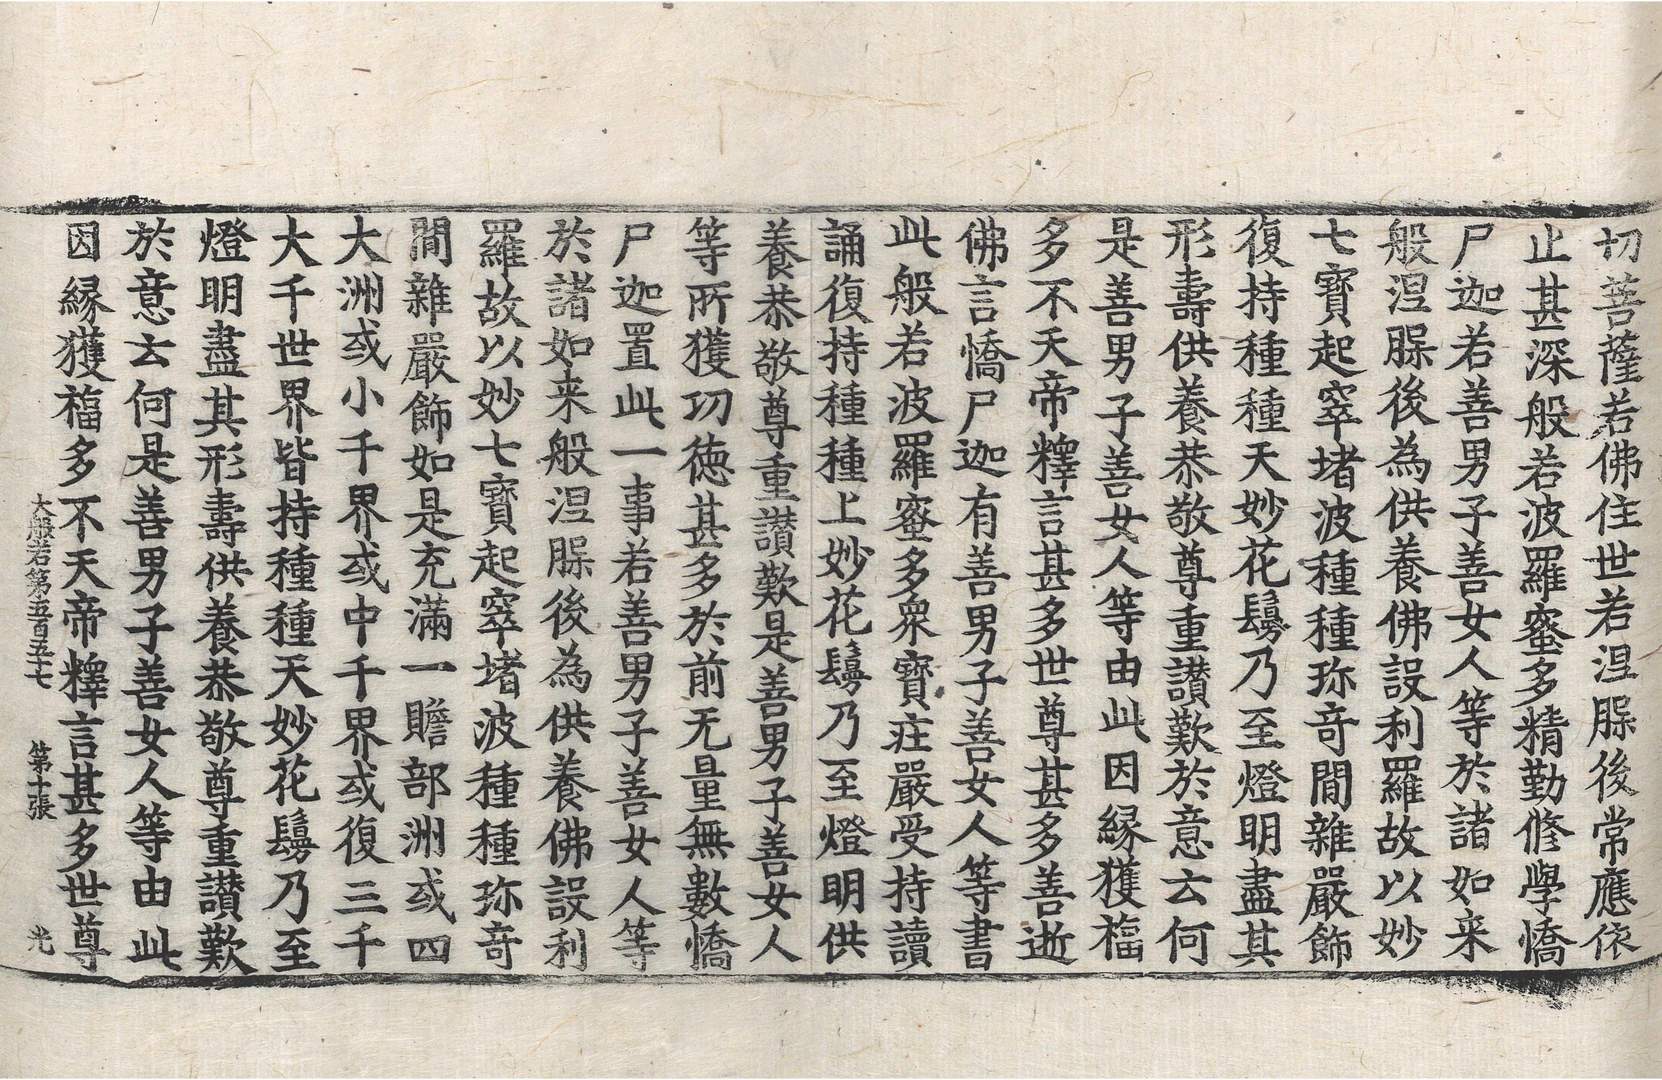 切菩薩若佛住世若涅脲後常應依
止甚深般若波羅蜜多精勤修學憍
尸迦若善男子善女人等於諸如来
般涅脲後為供養佛設利羅故以妙
七寶起窣堵波種種珎奇間雜嚴飾
復持種種天妙花鬘乃至燈明盡其
形壽供養恭敬尊重讃歎於意云何
是善男子善女人等由此因緣獲福
多不天帝釋言甚多世尊甚多善逝
佛言憍尸迦有善男子善女人等書
此般若波羅蜜多衆寶莊嚴受持讀
誦復持種種上妙花鬘乃至燈明供
養恭敬尊重讃歎是善男子善女人
等所獲功德甚多於前无量無數憍
尸迦置此一事若善男子善女人等
於諸如来般涅脲後為供養佛設利
羅故以妙七寶起窣堵波種種珎奇
間雜嚴飾如是充滿一贍部洲或四
大洲或小千界或中千界或復三千
大千世界皆持種種天妙花鬘乃至
燈明盡其形壽供養恭敬尊重讃歎
於意云何是善男子善女人等由此
因緣獲福多不天帝釋言甚多世尊
大般若第五百五十七 第十張 光